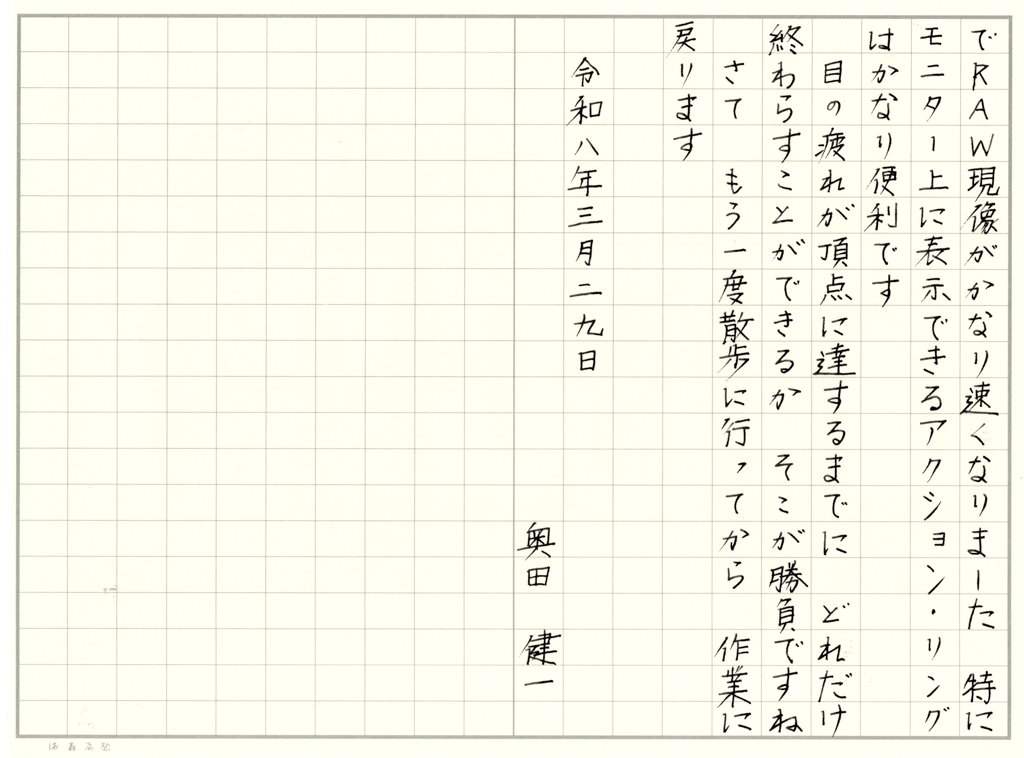 でRAW現像がかなり速くなりました　特に
モニター上に表示できるアクション・リング
はかなり便利です
　目の疲れが頂点に達するまでに　どれだけ
終わらすことができるか　そこが勝負ですね
　さて　もう一度散歩に行ってから　作業に
戻ります
　令和八年三月二九日
奥田　健一